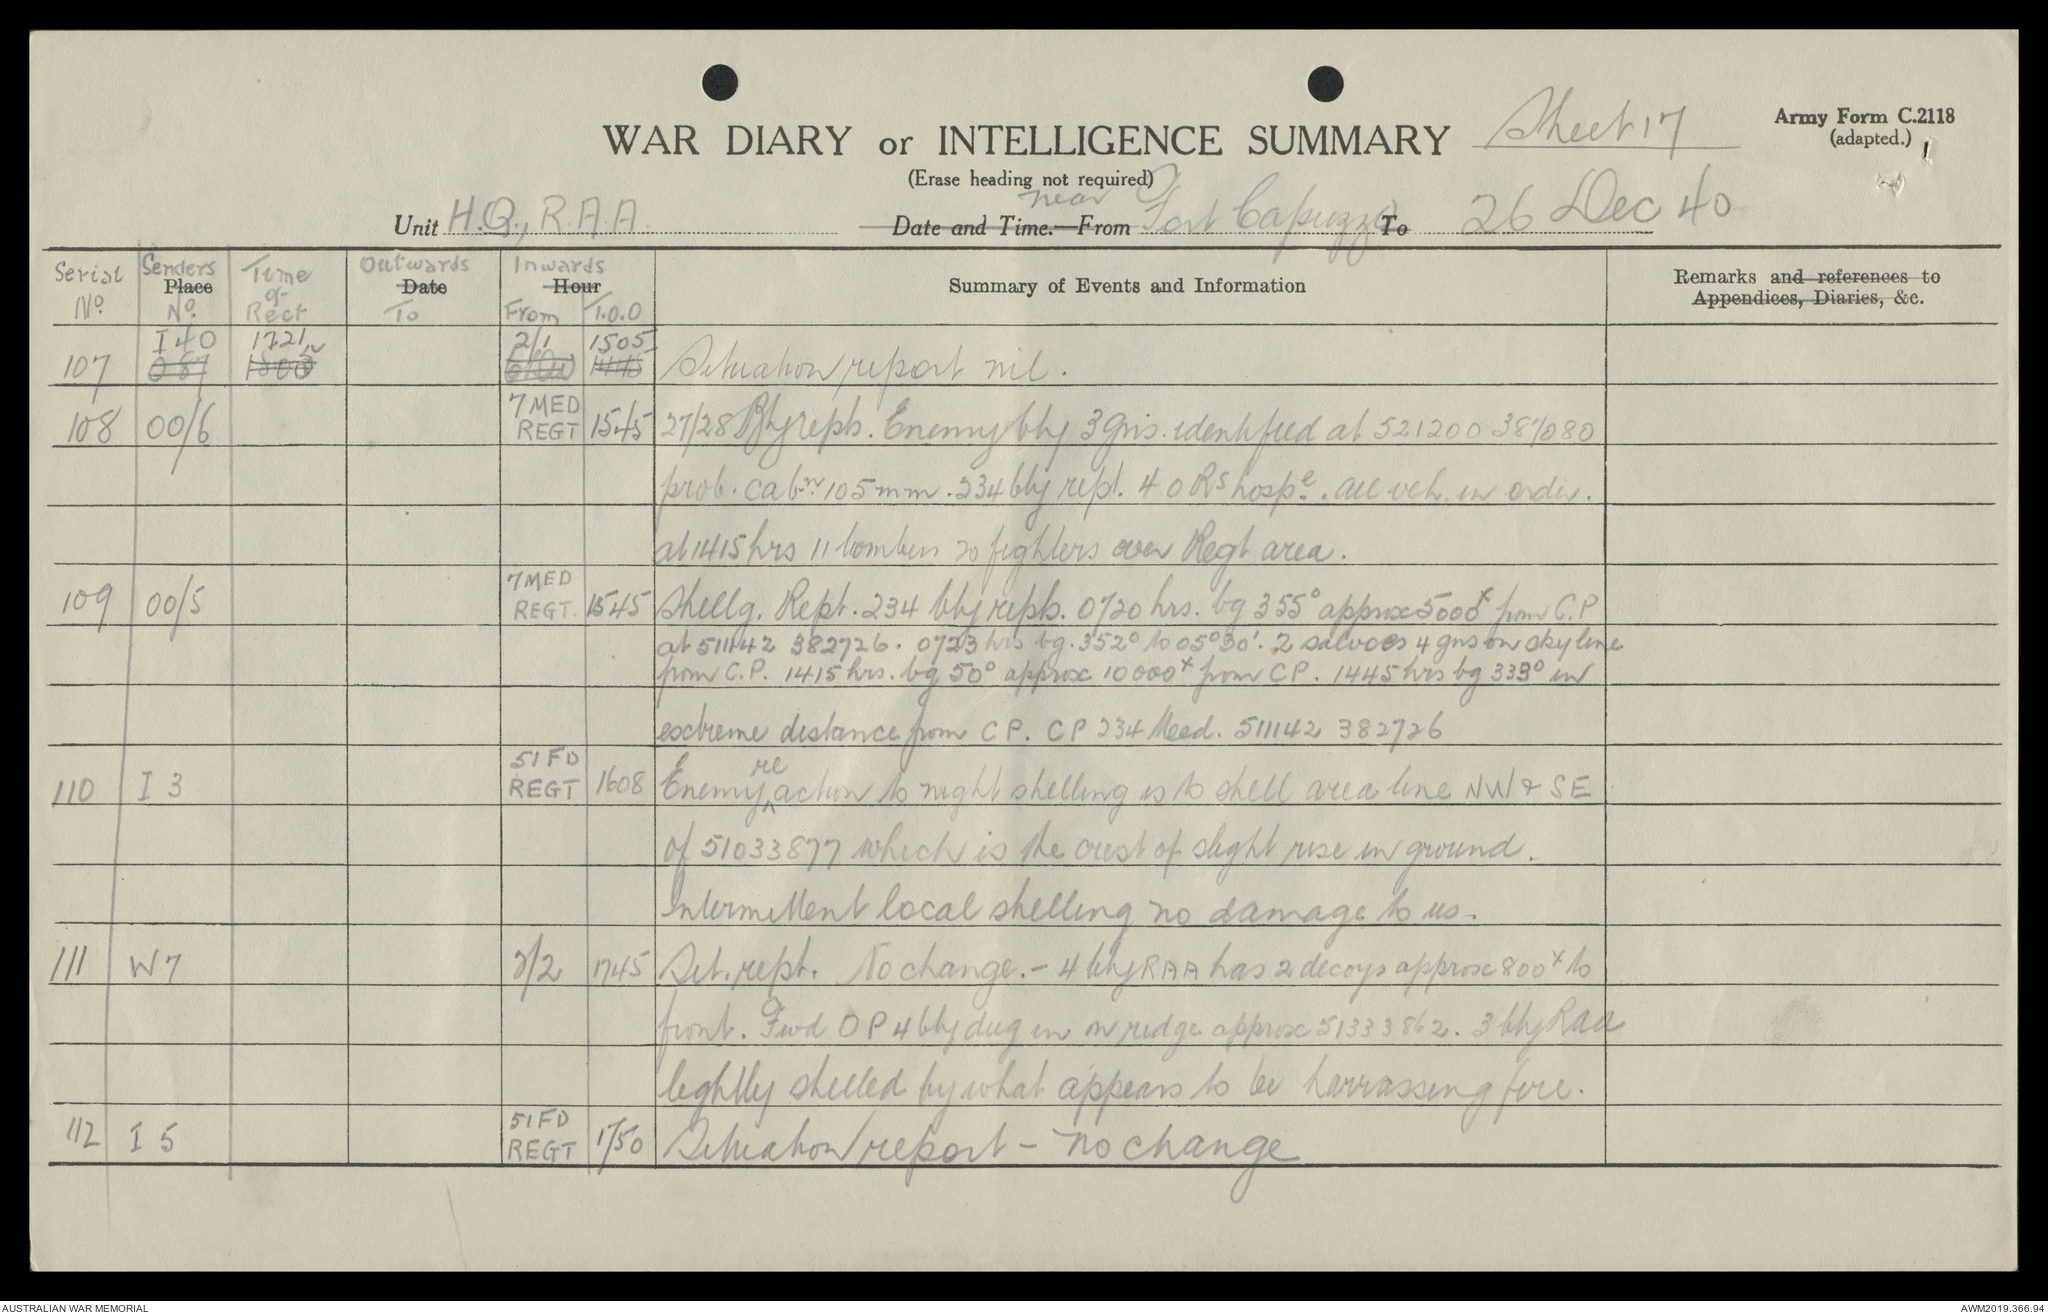 Sheet 17
Army Form C.2118
WAR DIARY or INTELLIGENCE SUMMARY
(adapted.)
(Erase heading not required)
Unit H.Q., R.A.A. Date and Time.—From near Fort Capuzzo To 26 Dec 40
Serial No. Senders Place No. Time of Rect Outwards Date To Inwards Hour From T.O.O Summary of Events and Information Remarks and references to Appendices, Diaries, &c.
I 40 1721 2/1 1505
107 087 1500 1445 Situation report nil.
7 MED
108 00/6 REGT 1545 27/28 Bty repts. Enemy bty 3 gns. identified at 521200 387080
prob. cabn 105mm. 234 bty rept. 4 ORs hospe. all veh. in order.
at 1415 hrs 11 bombers 20 fighters over Regt area.
7 MED
109 00/5 REGT. 1545 Shellg. Rept. 234 bty repts. 0720 hrs. bg 355° approx 5000x from C.P
at 511142 382726. 0723 hrs bg. 352° to 05°30'. 2 salvoes 4 gns on skyline
from C.P. 1415 hrs. bg 50° approx 10000x from CP. 1445 hrs bg 333° in
extreme distance from CP. CP 234 Med. 511142 382726
51 FD
110 I 3 REGT 1608 Enemy reaction to night shelling is to shell area line NW & SE
of 51033877 which is the crest of slight rise in ground.
Intermittent local shelling no damage to us.
111 W7 2/2 1745 Sit. rept. No change. - 4 bty RAA has 2 decoys approx 800x to
front. Fwd OP 4 bty dug in on ridge approx 51333862. 3 bty RAA
lightly shelled by what appears to be harrassing fire.
51 FD
112 I 5 REGT 1750 Situation report - no change
AUSTRALIAN WAR MEMORIAL
AWM2019.366.94